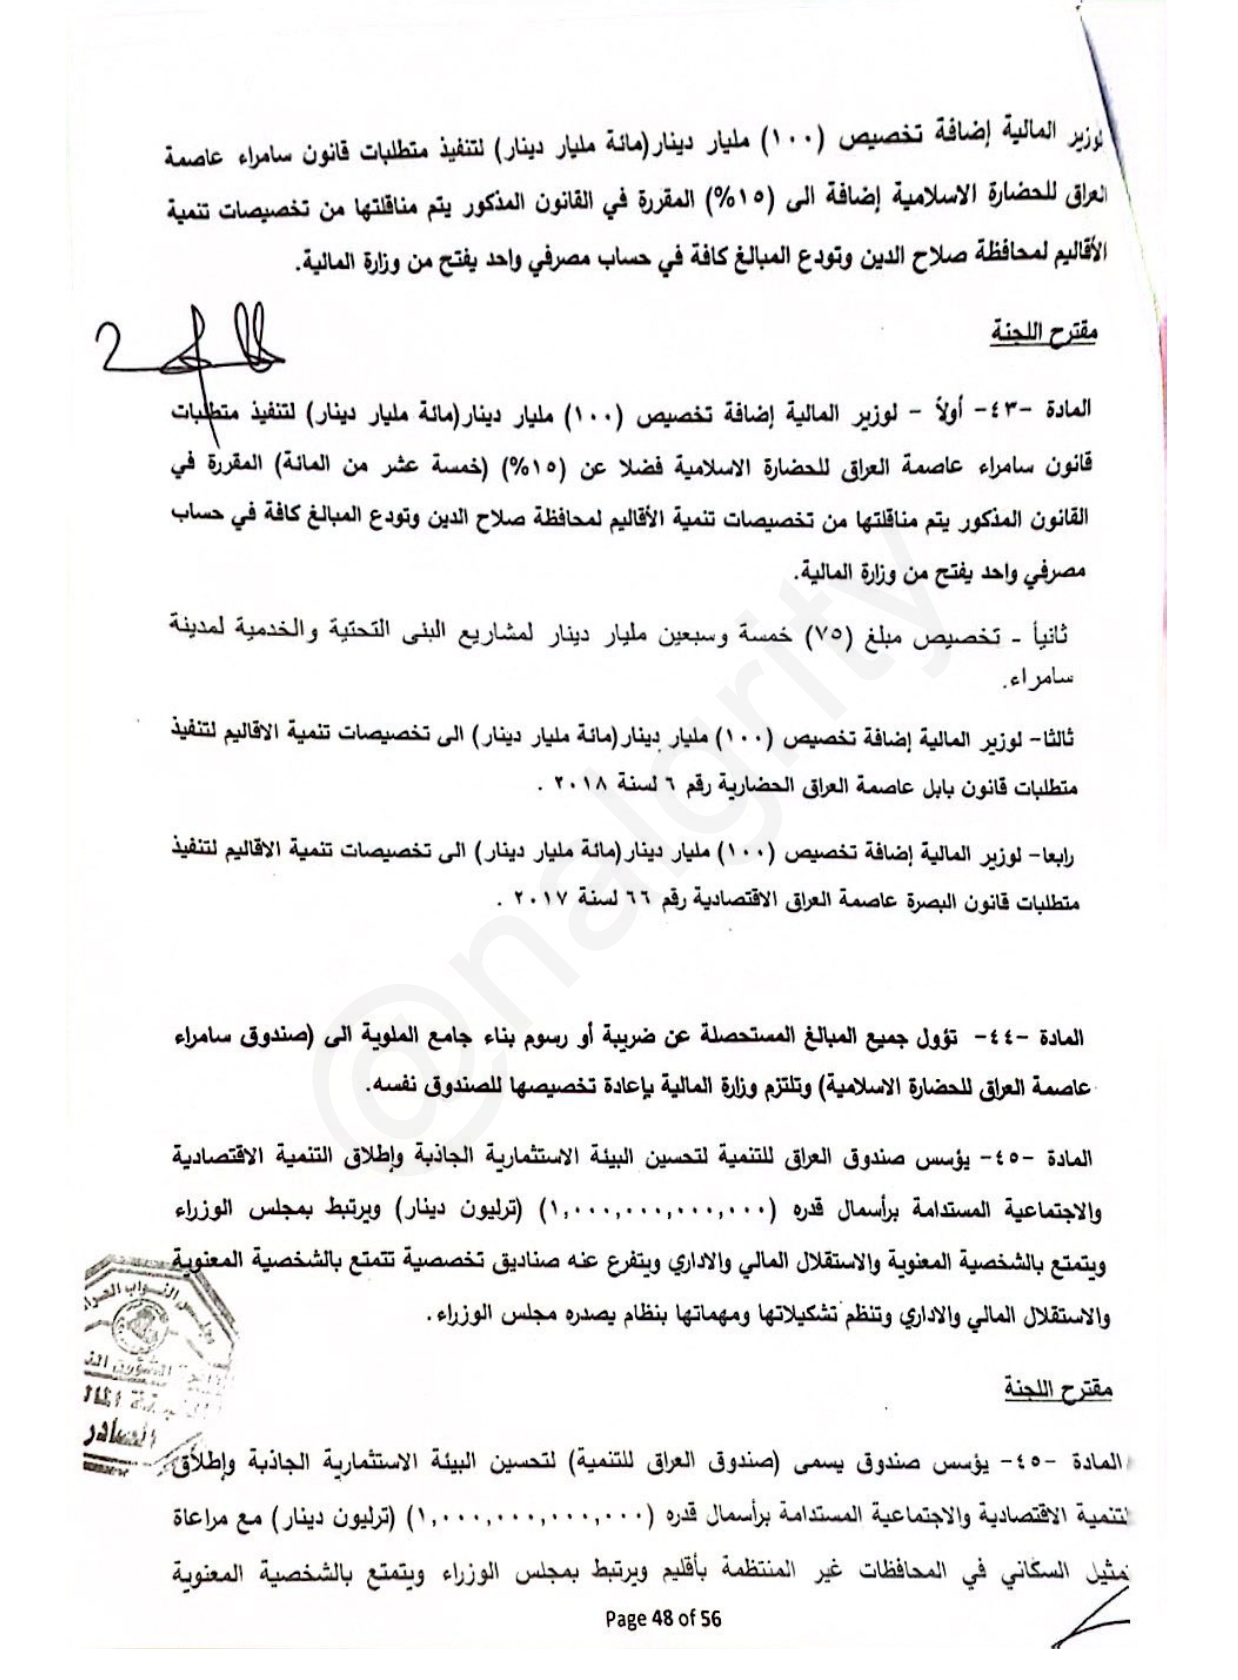 لوزير المالية إضافة تخصيص (١٠٠) مليار دينار(مائة مليار دينار) لتنفيذ متطلبات قانون سامراء عاصمة
العراق للحضارة الاسلامية إضافة الى (١٥%) المقررة في القانون المذكور يتم مناقلتها من تخصيصات تنمية
الأقاليم لمحافظة صلاح الدين وتودع المبالغ كافة في حساب مصرفي واحد يفتح من وزارة المالية.
مقترح اللجنة
المادة -٤٣- أولاً - لوزير المالية إضافة تخصيص (١٠٠) مليار دينار(مائة مليار دينار) لتنفيذ متطلبات
قانون سامراء عاصمة العراق للحضارة الاسلامية فضلا عن (١٥%) (خمسة عشر من المائة) المقررة في
القانون المذكور يتم مناقلتها من تخصيصات تنمية الأقاليم لمحافظة صلاح الدين وتودع المبالغ كافة في حساب
مصرفي واحد يفتح من وزارة المالية.
ثانيأ - تخصيص مبلغ (٧٥) خمسة وسبعين مليار دينار لمشاريع البنى التحتية والخدمية لمدينة
سامراء.
ثالثا- لوزير المالية إضافة تخصيص (١٠٠) مليار دينار(مائة مليار دينار) الى تخصيصات تنمية الاقاليم لتنفيذ
متطلبات قانون بابل عاصمة العراق الحضارية رقم ٦ لسنة ٢٠١٨ .
رابعا- لوزير المالية إضافة تخصيص (١٠٠) مليار دينار(مائة مليار دينار) الى تخصيصات تنمية الاقاليم لتنفيذ
متطلبات قانون البصرة عاصمة العراق الاقتصادية رقم ٦٦ لسنة ٢٠١٧ .
المادة -٤٤- تؤول جميع المبالغ المستحصلة عن ضريبة أو رسوم بناء جامع الملوية الى (صندوق سامراء
عاصمة العراق للحضارة الاسلامية) وتلتزم وزارة المالية بإعادة تخصيصها للصندوق نفسه.
المادة -٤٥- يؤسس صندوق العراق للتنمية لتحسين البيئة الاستثمارية الجاذبة وإطلاق التنمية الاقتصادية
والاجتماعية المستدامة برأسمال قدره (١,٠٠٠,٠٠٠,٠٠٠,٠٠٠) (ترليون دينار) ويرتبط بمجلس الوزراء
ويتمتع بالشخصية المعنوية والاستقلال المالي والاداري ويتفرع عنه صناديق تخصصية تتمتع بالشخصية المعنوية
والاستقلال المالي والاداري وتنظم تشكيلاتها ومهماتها بنظام يصدره مجلس الوزراء .
مقترح اللجنة
المادة -٤٥- يؤسس صندوق يسمى (صندوق العراق للتنمية) لتحسين البيئة الاستثمارية الجاذبة وإطلاق
لتنمية الاقتصادية والاجتماعية المستدامة برأسمال قدره (١,٠٠٠,٠٠٠,٠٠٠,٠٠٠) (ترليون دينار) مع مراعاة
مثيل السكاني في المحافظات غير المنتظمة بأقليم ويرتبط بمجلس الوزراء ويتمتع بالشخصية المعنوية
Page 48 of 56
@nalgrity